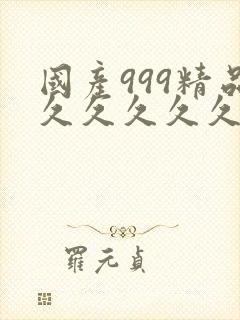 國産999精品
久久久久久
羅元貞